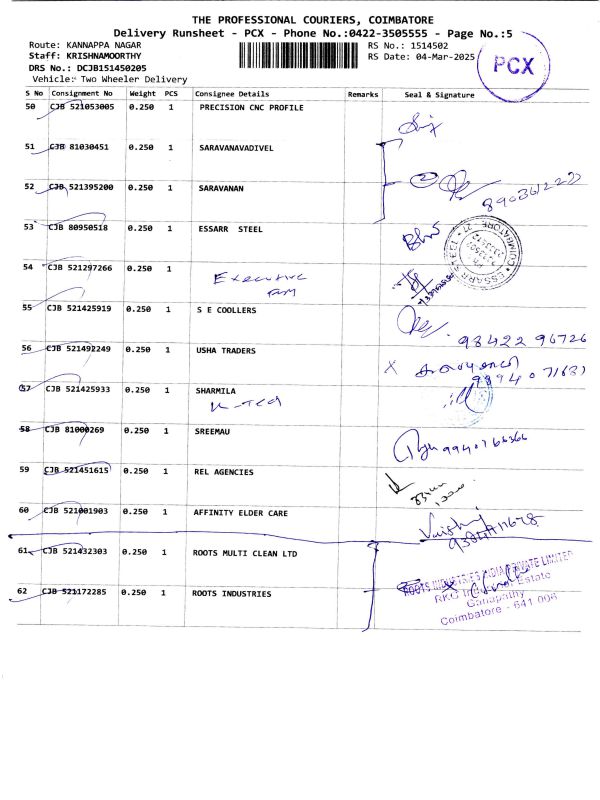 THE PROFESSIONAL COURIERS, COIMBATORE
Delivery Runsheet - PCX - Phone No.:0422-3505555 - Page No.:5
Route: KANNAPPA NAGAR RS No.: 1514502
Staff: KRISHNAMOORTHY RS Date: 04-Mar-2025
DRS No.: DCJB151450205
Vehicle: Two Wheeler Delivery
PCX
S No Consignment No Weight PCS Consignee Details Remarks Seal & Signature
50 CJB 521053005 0.250 1 PRECISION CNC PROFILE
51 CJB 81030451 0.250 1 SARAVANAVADIVEL
52 CJB 521395200 0.250 1 SARAVANAN
53 CJB 80950518 0.250 1 ESSARR STEEL
54 CJB 521297266 0.250 1
Executive
55 CJB 521425919 0.250 1 S E COOLLERS
98422 96726
56 CJB 521492249 0.250 1 USHA TRADERS
57 CJB 521425933 0.250 1 SHARMILA
58 CJB 81000269 0.250 1 SREEMAU
59 CJB 521451615 0.250 1 REL AGENCIES
60 CJB 521001903 0.250 1 AFFINITY ELDER CARE
61 CJB 521432303 0.250 1 ROOTS MULTI CLEAN LTD
62 CJB 521172285 0.250 1 ROOTS INDUSTRIES
ROOTS INDUSTRIES INDIA PRIVATE LIMITED
RKG Industrial Estate
Ganapathy
Coimbatore - 641 006